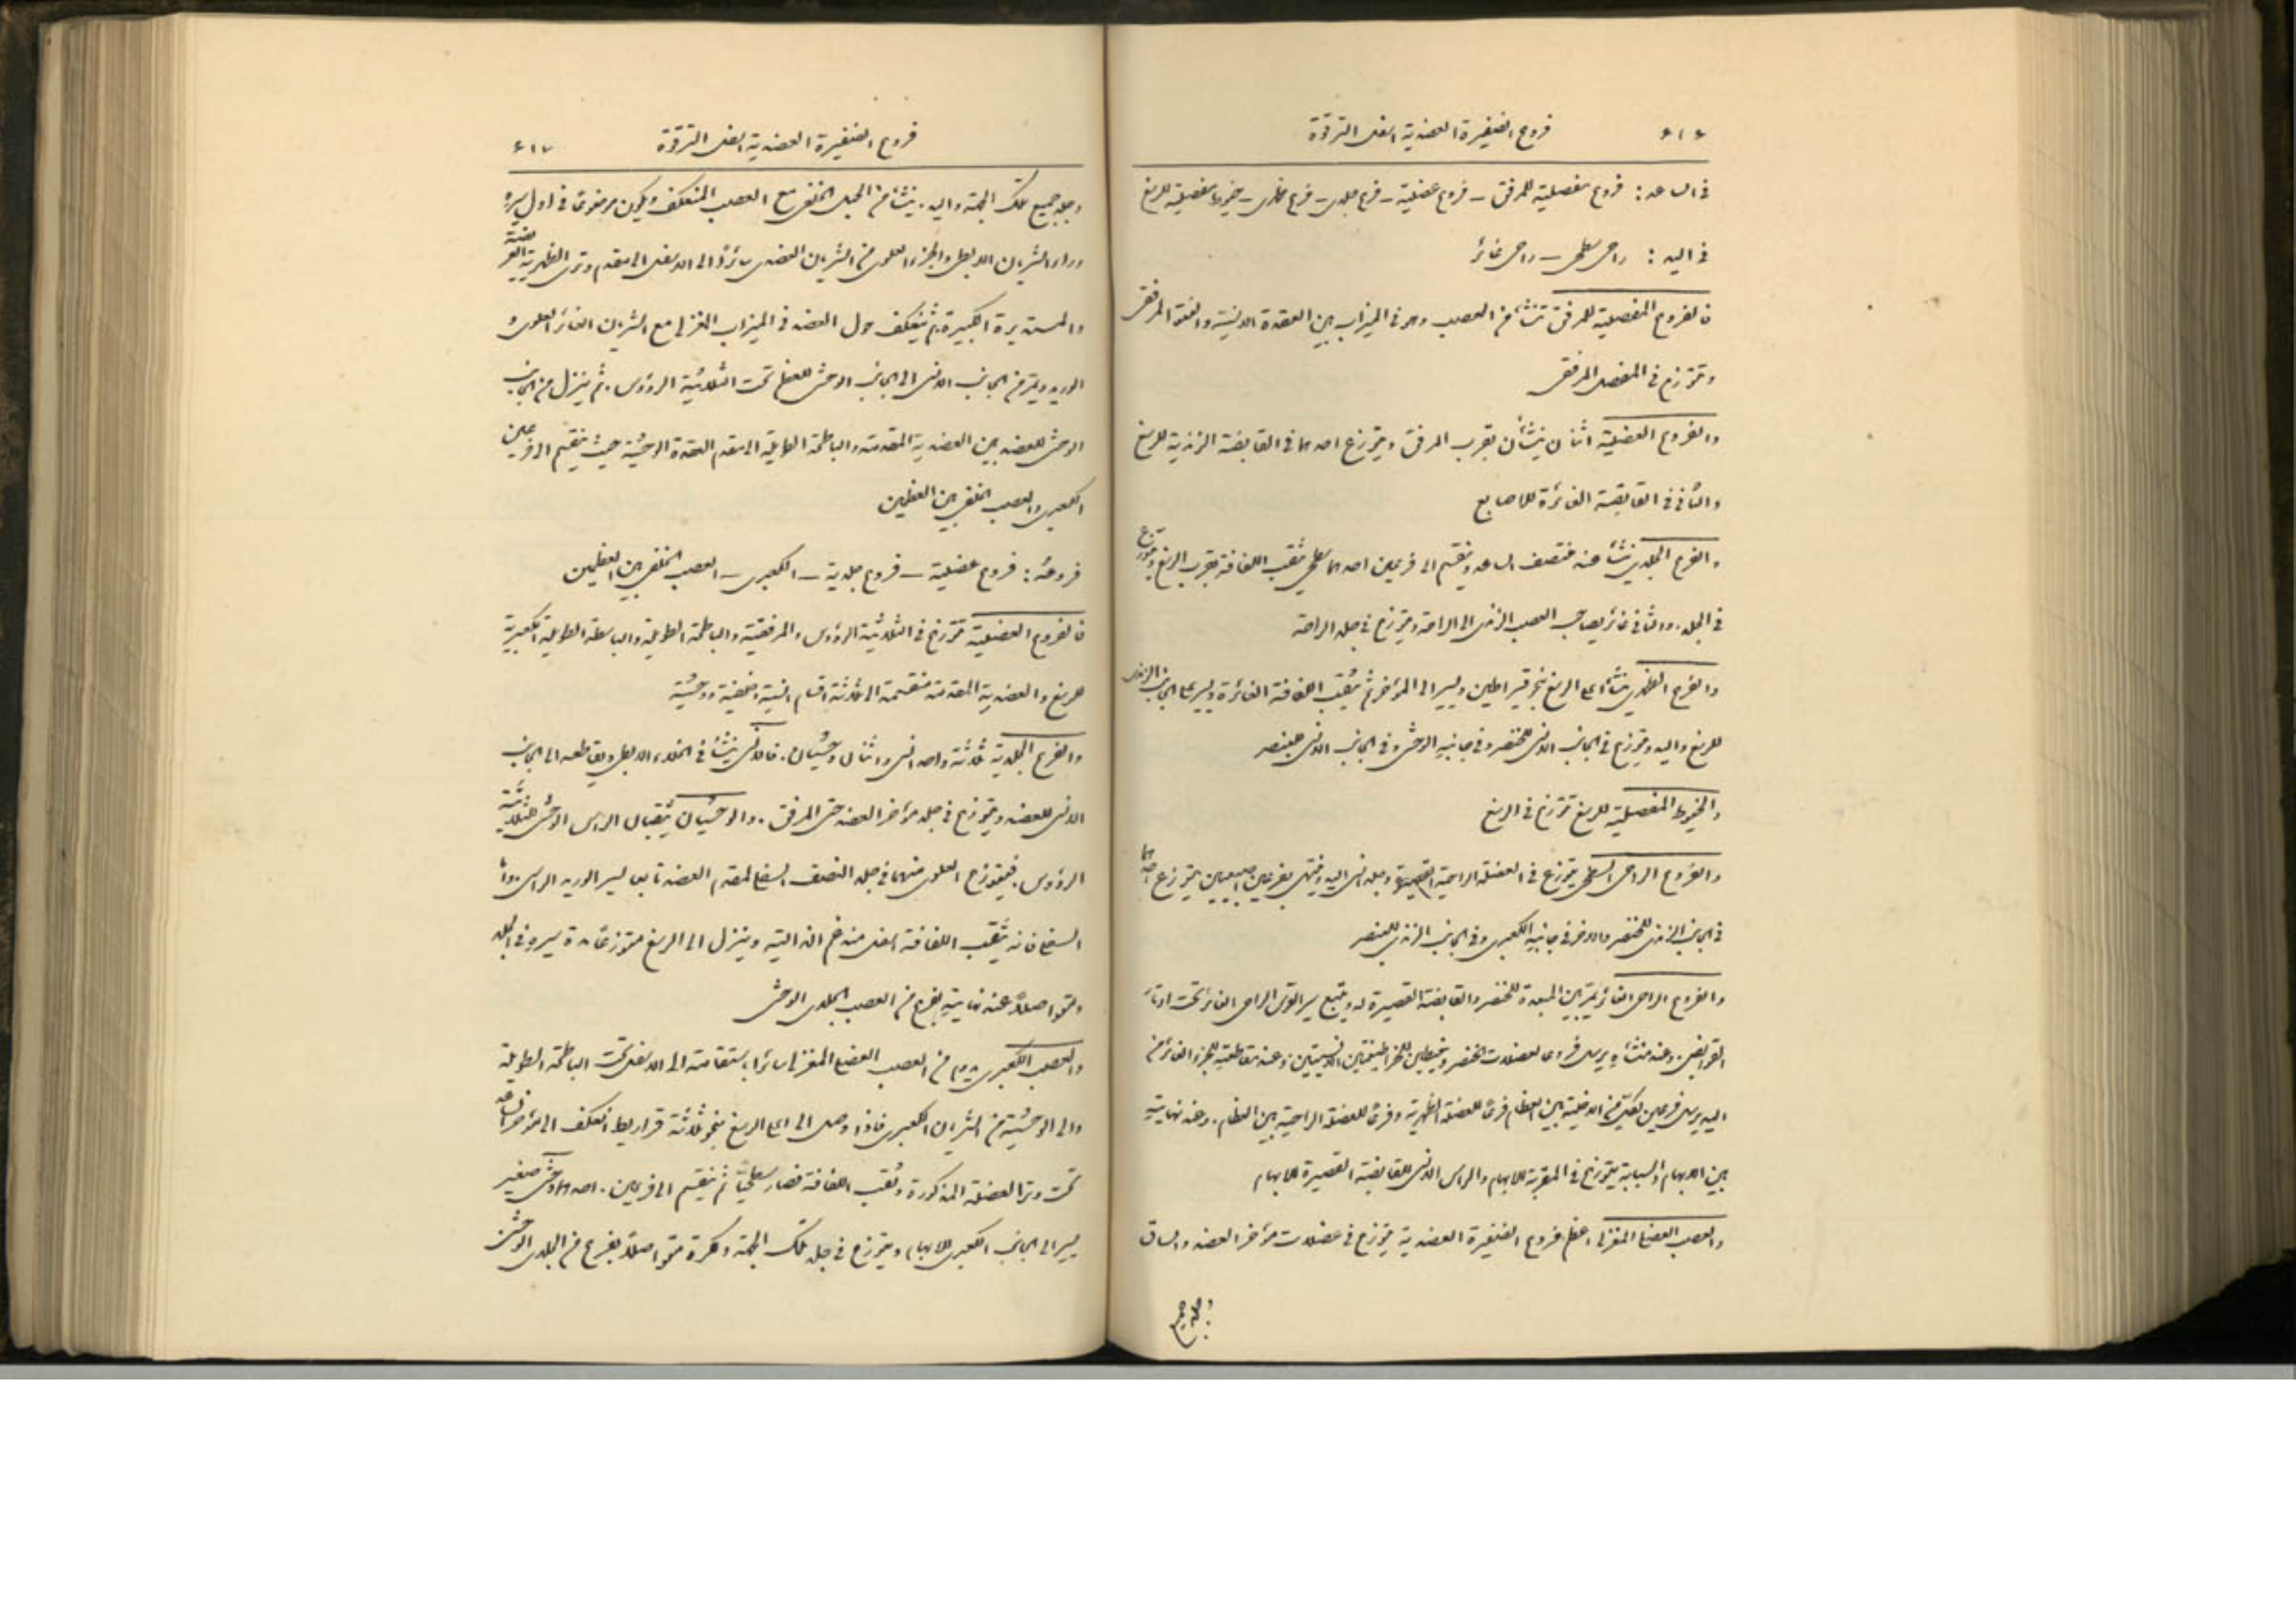 ٤١٦ فروع الضفيرة العضدية اسفل الترقوة
في الساعد: فروع مفصلية للمرفق – فروع عضلية – فرع جلدي – فرع ظهري – خيوط مفصلية للرسغ
في اليد: راحي سطحي – راحي غائر
فالفروع المفصلية للمرفق تنشأ من العصب وهو في الميزاب بين العقدة الانسية والنتوء المرفقي
وتتوزع في المفصل المرفقي
والفروع العضلية اثنان ينشأن بقرب المرفق ويتوزع احدهما في القابضة الزندية للرسغ
والثاني في القابضة الغائرة للاصابع
والفرع الجلدي ينشأ عند منتصف الساعد وينقسم الى فرعين احدهما سطحي يثقب اللفافة بقرب الرسغ ويتوزع
في الجلد. والثاني غائر يصاحب العصب الزندي الى الراحة ويتوزع في جلد الراحة
والفرع الظهري ينشأ اعلى الرسغ بنحو قيراطين ويسير الى المؤخر ثم يثقب اللفافة الغائرة ويسير على الجانب الانسي
للرسغ واليد ويتوزع في الجانب الانسي للخنصر وفي جانبه الوحشي وفي الجانب الانسي للبنصر
والخيوط المفصلية للرسغ تتوزع في الرسغ
والفروع الراحي السطحي يتوزع في العضلة الراحية القصيرة وجلد انسي اليد وينتهي بفرعين اصبعيين يتوزع احدهما
في الجانب الزندي للخنصر والآخر في جانبه الكعبري وفي الجانب الزندي للبنصر
والفروع الراحي الغائر يمر بين المبعدة للخنصر والقابضة القصيرة له ويتبع سير القوس الراحي الغائر تحت اوتار
القوابض. وعند منشأه يرسل فروعا لعضلات الخنصر وخيطين للخراطينيتين الانسيتين وعند مقاطعته للجزء الغائر من
اليد يرسل فرعين لكل من الاخلية بين العظام فرعًا للعضلة الظهرية وفرعًا للعضلة الراحية بين العظام. وعند نهايته
بين الابهام والسبابة يتوزع في المقربة للابهام والراس الانسي للقابضة القصيرة للابهام
والعصب العضلي المغزلي اعظم فروع الضفيرة العضدية يتوزع في عضلات مؤخر العضد والساق
وجلد جميع
فروع الضفيرة العضدية اسفل الترقوة ٤١٧
وجلد جميع تلك الجهة واليد. ينشأ من الحبل الخلفي مع العصب المنعكف ويكون موضوعًا في اول سيره
وراء الشريان الابطي والجزء العلوي من الشريان العضدي سائرًا الى الاسفل الى مقدم وتري الظهرية العريضة
والمستديرة الكبيرة. ثم ينعكف حول العضد في الميزاب المغزلي مع الشريان الغائر العلوي
والوريد ويمر من الجانب الانسي الى الجانب الوحشي للعظم تحت الثلاثية الرؤوس. ثم ينزل من الجانب
الوحشي للعضد بين العضدية المقدمة والباطحة الطويلة الى مقدم العقدة الوحشية حيث ينقسم الى فرعين
الكعبري والعصب الخلفي بين العظمين
فروعه: فروع عضلية – فروع جلدية – الكعبري – العصب الخلفي بين العظمين
فالفروع العضلية تتوزع في الثلاثية الرؤوس والمرفقية والباطحة الطويلة والباسطة الطويلة الكعبرية
للرسغ والعضدية المقدمة منقسمة الى ثلاثة اقسام انسية وخلفية ووحشية
والفروع الجلدية ثلاثة واحد انسي واثنان وحشيان. فالانسي ينشأ في الخلاء الابطي ويقاطعه الى الجانب
الانسي للعضد ويتوزع في جلد مؤخر العضد حتى المرفق. والوحشيان يثقبان الراس الوحشي للثلاثية
الرؤوس. فيتوزع العلوي منهما في جلد النصف السفلي لمقدم العضد تابعا لسير الوريد الراسي. واما
السفلي فانه يثقب اللفافة اسفل مندغم الدالية وينزل الى الرسغ متوزعًا مدة سيره في الجلد
ومتواصلاً عند نهايته بفرع من العصب الجلدي الوحشي
والعصب الكعبري يدوم من العصب العضلي المغزلي سائرا باستقامة الى الاسفل تحت الباطحة الطويلة
والى الوحشية من الشريان الكعبري فاذا وصل الى اعلى الرسغ بنحو ثلاثة قراريط انعكف الى مؤخر الساعد
تحت وتر العضلة المذكورة وثقب اللفافة فصار سطحيًّا ثم ينقسم الى فرعين. احدهما وحشي صغير
يسير الى الجانب الكعبري للابهام ويتوزع في جلد تلك الجهة وكرة متواصلاً بفرع من الجلدي الوحشي